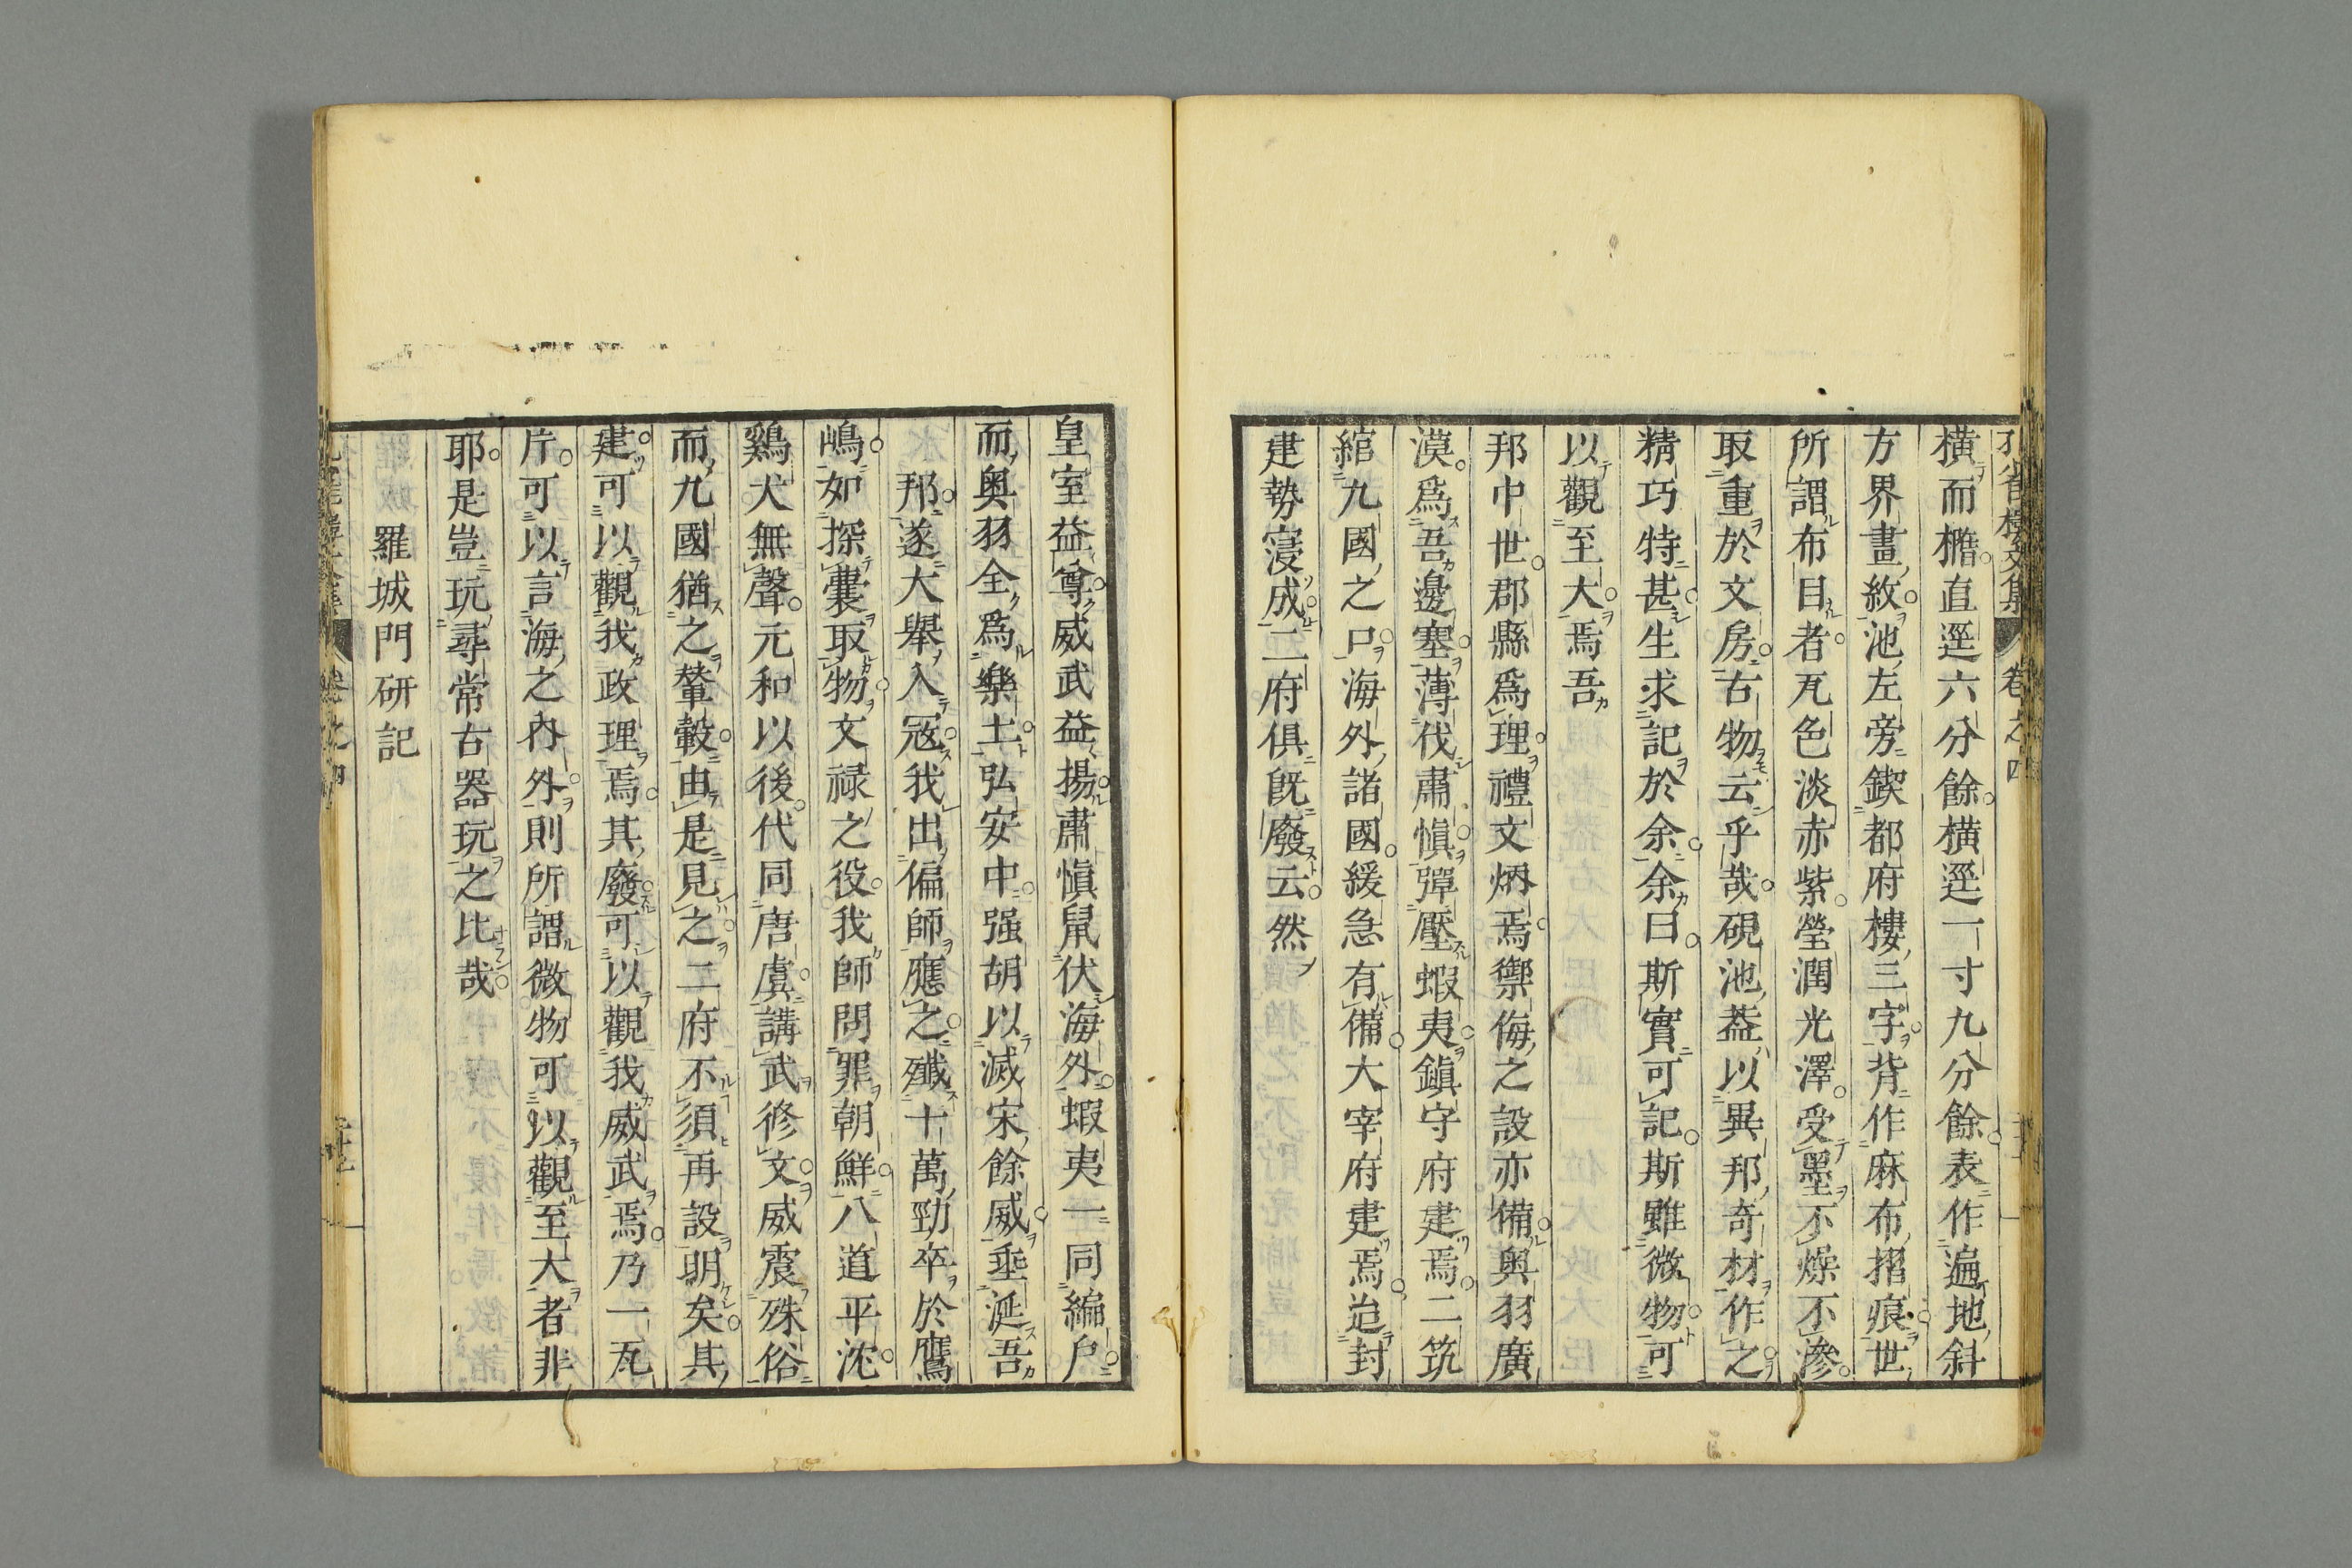 橫而橢直逕六分餘橫逕一寸九分餘表作遍地斜
方界畫紋池左旁鍥都府樓三字背作麻布摺痕世
所謂布目者瓦色淡赤紫瑩潤光澤受墨不燥不滲
取重於文房古物云乎哉硯池葢以異邦奇材作之
精巧特甚生求記於余余曰斯實可記斯雖微物可
以觀至大焉吾
邦中世郡縣爲理禮文炳焉禦侮之設亦備奧羽廣
漠爲吾邊塞薄伐肅愼彈壓蝦夷鎭守府建焉二筑
綰九國之口海外諸國緩急有備大宰府建焉迨封
建勢寖成二府俱旣廢云然
皇室益尊威武益揚肅愼鼠伏海外蝦夷一同編戶
而奧羽全爲樂土弘安中强胡以滅宋餘威垂涎吾
邦遂大舉入寇我出偏師應之殱十萬勁卒於鷹
嶋如探囊取物文禄之役我師問罪朝鮮八道平沈
鷄犬無聲元和以後代同唐虞講武修文威震殊俗
而九國猶之輦轂由是見之二府不須再設明矣其
建可以觀我政理焉其廢可以觀我威武焉乃一瓦
片可以言海之內外則所謂微物可以觀至大者非
耶是豈玩尋常古器玩之比哉
羅城門研記
卷之四